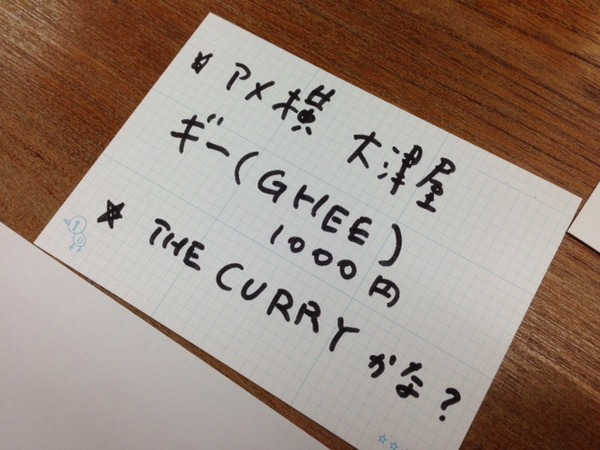 ☆ アメ横 大津屋
ギー(GHEE)
1000円
☆ THE CURRY かな?